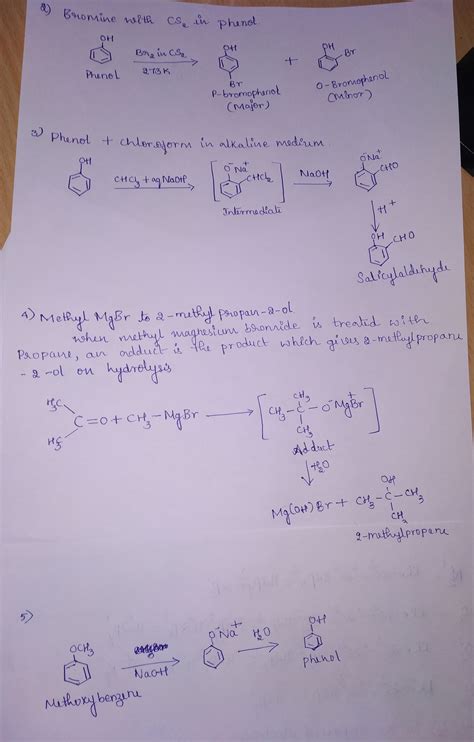 2) Bromine with CS2 in phenol
OH
Phenol
Br2 in CS2
273K
OH
Br
P-bromophenol
(Major)
+
OH
Br
O-Bromophenol
(Minor)
3) Phenol + chloroform in alkaline medium.
OH
CHCl3 + aq NaOH
O⁻Na⁺
CHCl2
Intermediate
NaOH
O⁻Na⁺
CHO
H+
OH
CHO
Salicylaldehyde
4) Methyl MgBr to 2-methyl propan-2-ol
when methyl magnesium bromide is treated with
Propane, an adduct is the product which gives 2-methylpropane
-2-ol on hydrolysis
H3C
H3C
C=O + CH3-MgBr
CH3
CH3-C-O⁻Mg⁺Br
CH3
Adduct
H2O
Mg(OH)Br + CH3-C-CH3
OH
CH3
2-methylpropane
5)
OCH3
Methoxybenzene
NaOH
O⁻Na⁺
H2O
OH
phenol